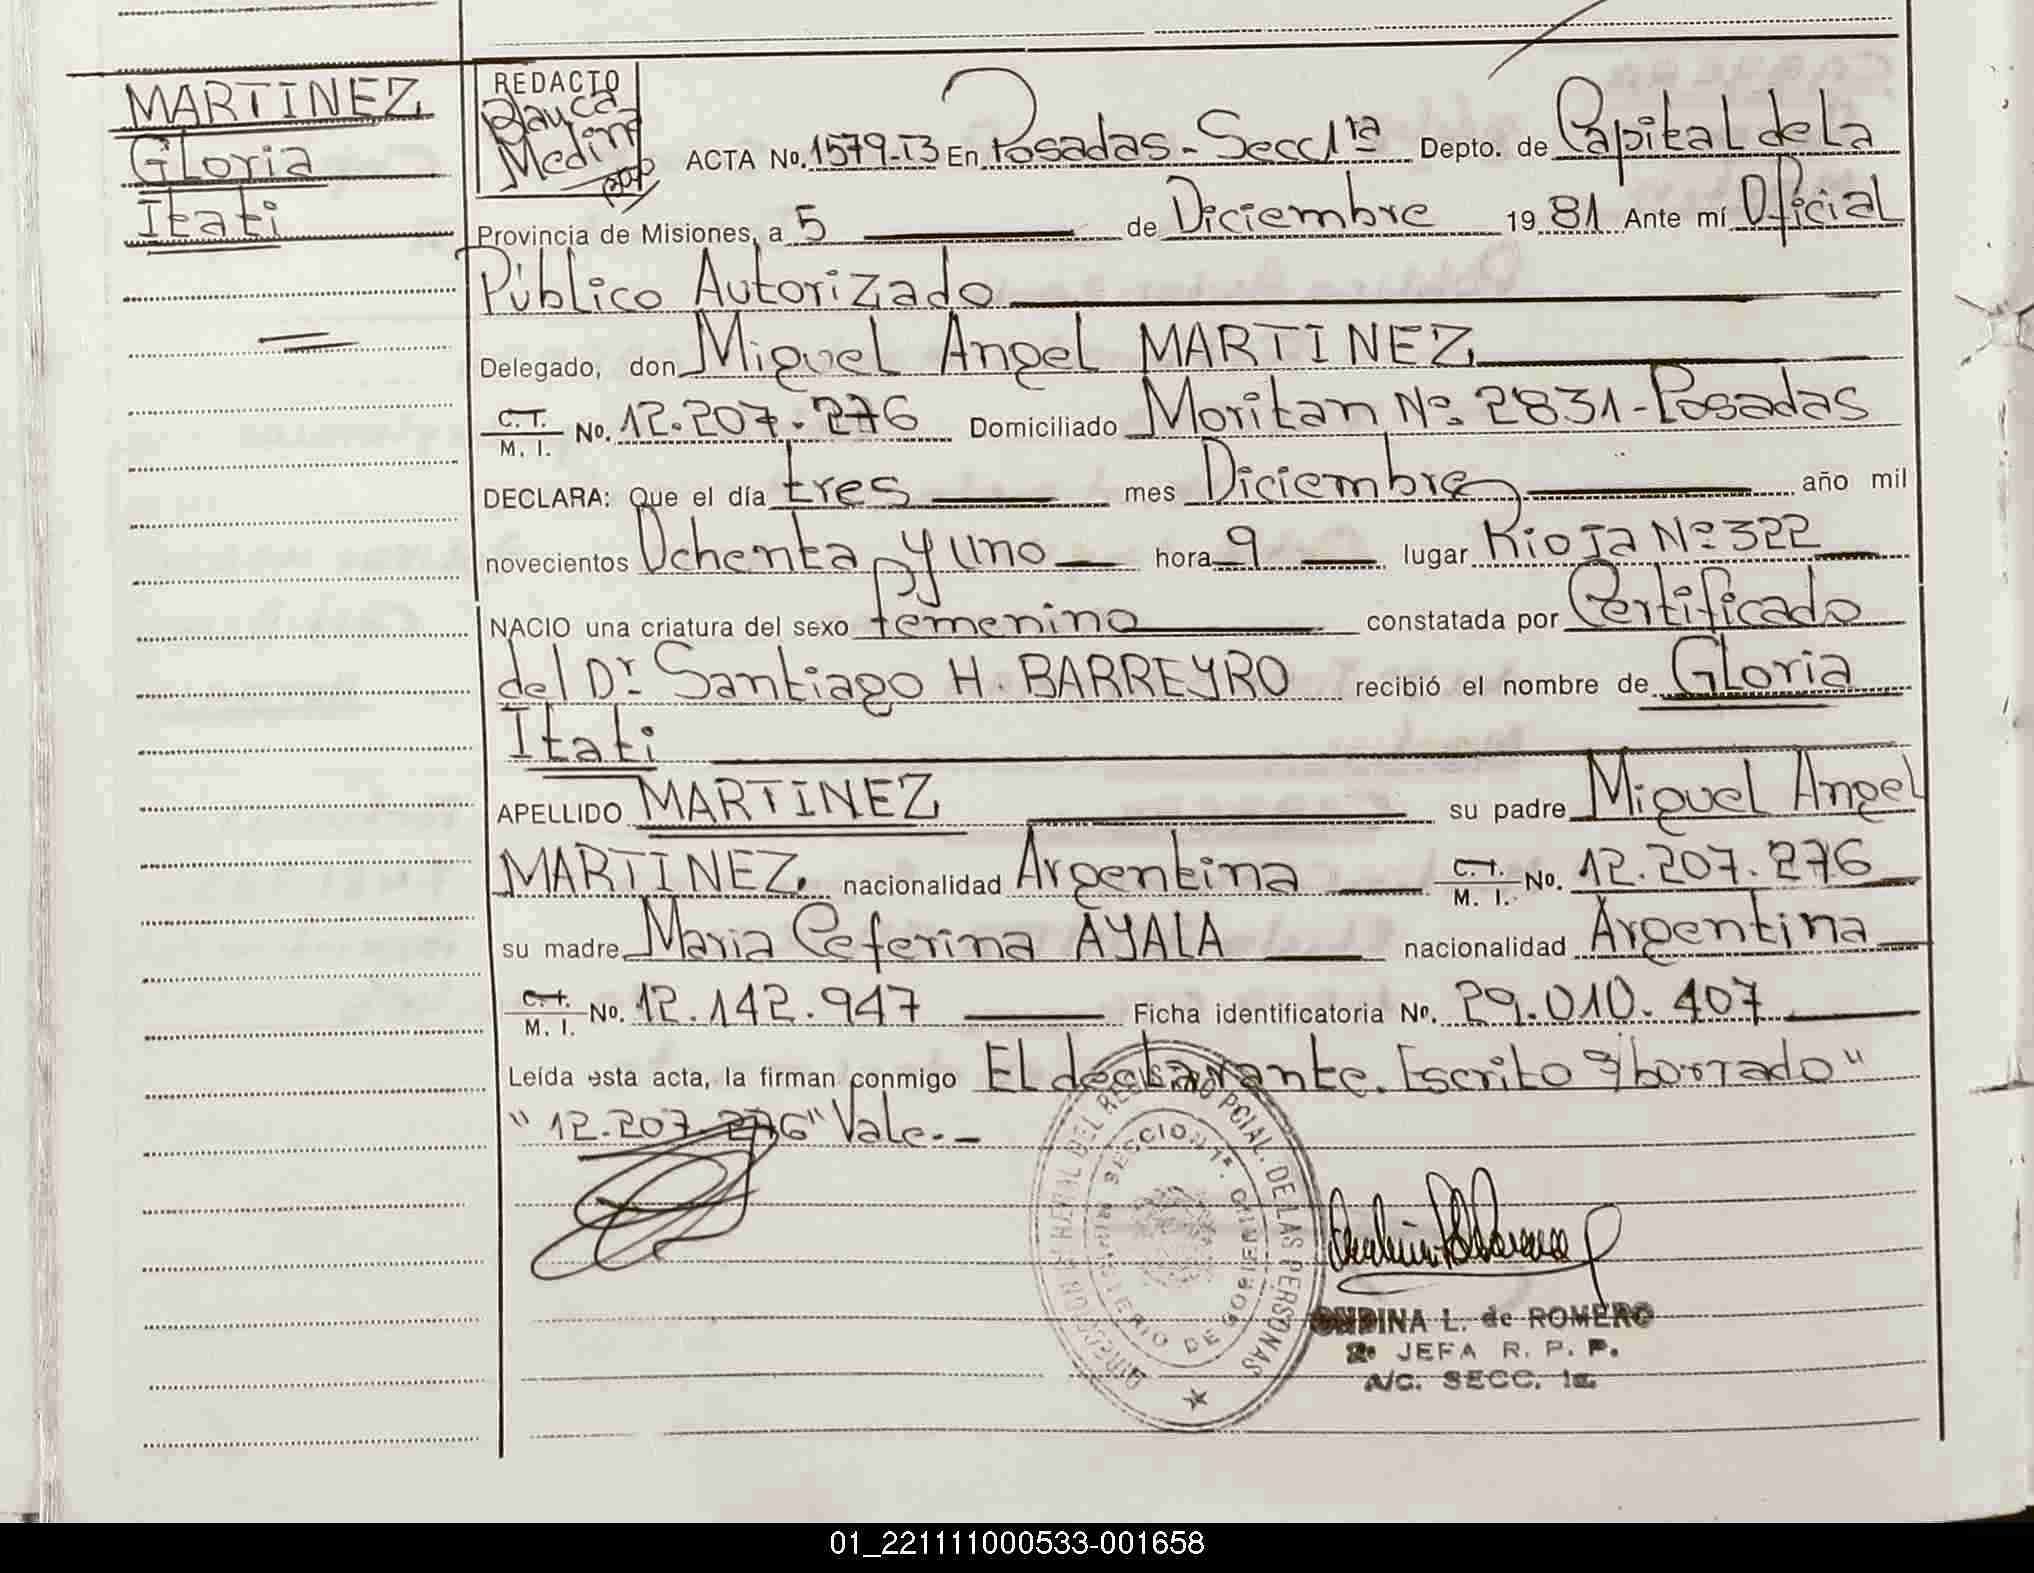 MARTINEZ
Gloria
Itati
REDACTO
Blanca
Medina
ACTA No. 1579-T3 En Posadas - Secc 1ra Depto. de Capital de La
Provincia de Misiones, a 5 de Diciembre 19 81 Ante mí Oficial
Público Autorizado
Delegado, don Miguel Angel MARTINEZ
C.T. M. I. No. 12.207.276 Domiciliado Moritan Nº 2831 - Posadas
DECLARA: Que el día tres mes Diciembre año mil
novecientos Ochenta y uno hora 9 lugar Rioja Nº 322
NACIO una criatura del sexo femenino constatada por Certificado
del Dr. Santiago H. BARREYRO recibió el nombre de Gloria
Itati
APELLIDO MARTINEZ su padre Miguel Angel
MARTINEZ. nacionalidad Argentina C.T. M. I. No. 12.207.276
su madre Maria Ceferina AYALA nacionalidad Argentina
C.T. M. I. No. 12.142.947 Ficha identificatoria No. 29.010.407
Leída esta acta, la firman conmigo El declarante. Escrito s/borrado"
"12.207.276" Vale.-
DIRECCION GENERAL DEL REGISTRO PCIAL. DE LAS PERSONAS
SECCION 1ª.
MINISTERIO DE GOBIERNO
ONDINA L. de ROMERO
2º JEFA R. P. P.
A/C. SECC. 1a.
01_221111000533-001658